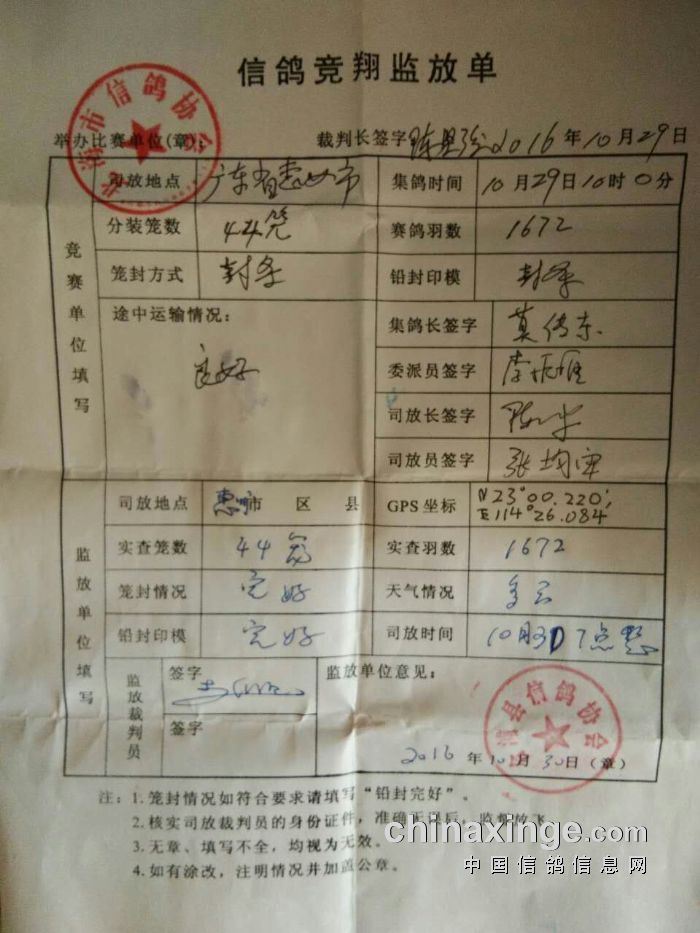 信鸽竞翔监放单
举办比赛单位(章): 裁判长签字 2016年10月29日
北海市信鸽协会
竞赛单位填写
司放地点 广东省惠州市 集鸽时间 10月29日10时0分
分装笼数 44笼 赛鸽羽数 1672
笼封方式 封条 铅封印模 封条
途中运输情况: 良好
集鸽长签字 莫传东
委派员签字 李
司放长签字
司放员签字 张均
监放单位填写
司放地点 惠州市 区 县 GPS坐标 N23°00.220' E114°26.084'
实查笼数 44 实查羽数 1672
笼封情况 完好 天气情况 多云
铅封印模 完好 司放时间 10月 7点整
监放裁判员
签字
签字
监放单位意见:
县信鸽协会
2016年10月30日(章)
注:1.笼封情况如符合要求请填写“铅封完好”。
2.核实司放裁判员的身份证件,准确无误后,监督放飞。
3.无章、填写不全,均视为无效。
4.如有涂改,注明情况并加盖公章。
chinaxinge.com
中国信鸽信息网